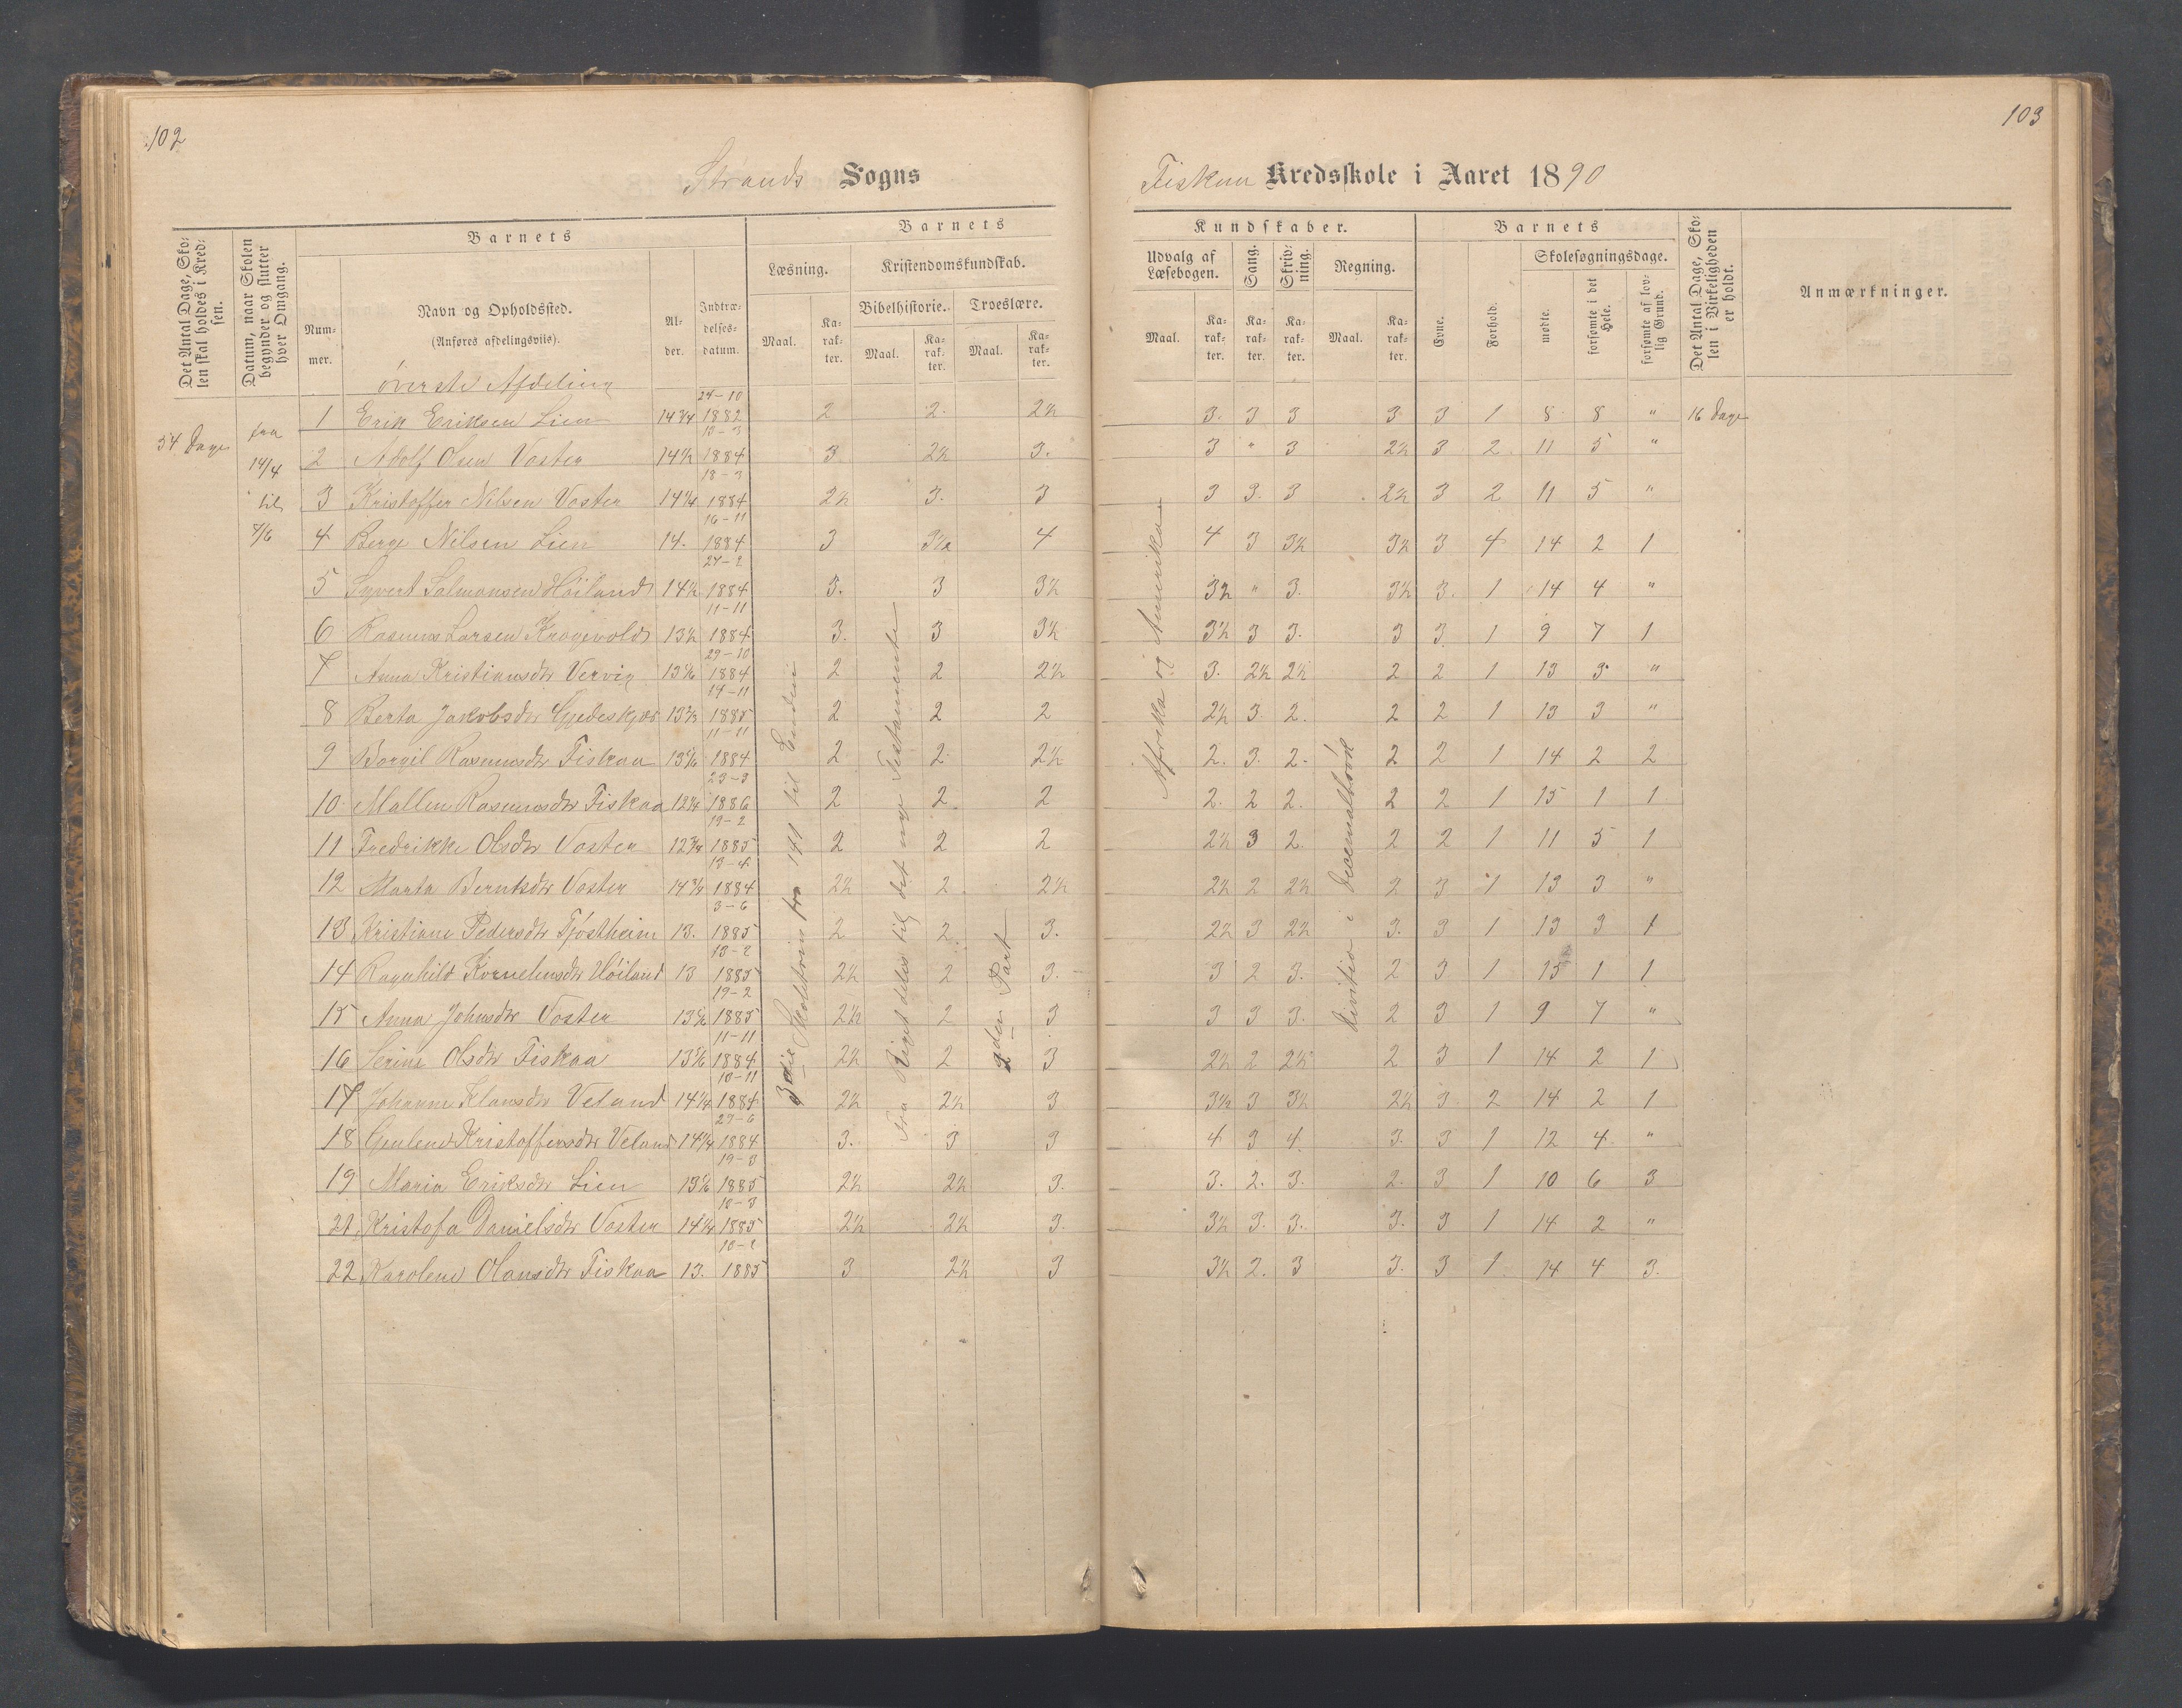 102
103
Strands Sogns
Fiskaa Kredsskole i Aaret 1890
Det Antal Dage, Skolen skal holdes i Kredsen.
Datum, naar Skolen begynder og slutter hver Omgang.
Barnets
Nummer.
Navn og Opholdssted.
(Anføres afdelingsviis).
Alder.
Indtrædelsesdatum.
Barnets
Læsning.
Kristendomskundskab.
Bibelhistorie.
Troeslære.
Maal.
Karakter.
Maal.
Karakter.
Maal.
Karakter.
Kundskaber.
Udvalg af Læsebogen.
Sang.
Skrivning.
Regning.
Maal.
Karakter.
Karakter.
Karakter.
Maal.
Karakter.
Barnets
Evne.
Forhold.
Skolesøgningsdage.
mødte.
forsømte i det Hele.
forsømte af lovlig Grund.
Det Antal Dage, Skolen i Virkeligheden er holdt.
Anmærkninger.
øverste Afdeling
54 Dage
fra
14/4
til
7/6
16 Dage
3die Skoletrin fra 141 til Enden
Fra Riget deles til det nye Testamente
2den Part
Afrika og Amerika
Divition i Decemalbrøk
1 Erik Eriksen Lien 14 3/4 24-10 1882 2 2. 2½ 3. 3 3 3 3 1 8 8 "
2 Adolf Olsen Voster 14½ 13-3 1884 3 2½ 3. 3 " 3 2½ 3 2 11 5 "
3 Kristoffer Nilsen Voster 14¼ 18-3 1884 2½ 3. 3 3 3. 3 2½ 3 2 11 5 "
4 Berge Nilsen Lien 14. 16-11 1884 3 3½ 4 4 3 3½ 3½ 3 4 14 2 1
5 Syvert Salmonsen Høiland 14½ 24-2 1884 3. 3 3½ 3½ " 3. 3½ 3. 1 14 4 "
6 Rasmus Larsen Krogevold 13½ 11-11 1884 3. 3 3½ 3½ 3 3. 3 3. 1 9 7 1
7 Anna Kristiansdtr Vervig 29-10 1884 2 2 2½ 3. 2½ 2½ 2 2 1 13 3 "
8 Berta Jakobsdtr Gjedeskjær 14-11 1885 2 2 2 2½ 3. 2. 2 2 1 13 3 "
9 Borgil Rasmusdtr Fiskaa 11-11 1884 2 2 2½ 2. 3. 2. 2 2 1 14 2 2
10 Mallen Rasmusdtr Fiskaa 12¼ 23-3 1886 2 2. 2 2. 2 2. 2 2 1 15 1 1
11 Fredrikke Olsdtr Voster 12¾ 19-2 1885 2 2 2 2½ 3 2. 2 2 1 11 5 1
12 Marta Berntsdtr Voster 14¾ 13-4 1884 2½ 2. 2½ 2½ 2 2½ 2 3 1 13 3 "
13 Kristiane Pedersdtr Tjøstheim 13. 3-6 1885 2 2. 3. 2½ 3 2½ 3. 3 1 13 3 1
14 Ragnhild Korneliusdtr Høiland 13 13-2 1885 2½ 2 3. 3 2 3. 2 3 1 15 1 1
15 Anna Johnsdtr Voster 19-2 1885 2½ 2 3 3 3 3. 2 3 1 9 7 "
16 Serine Olsdtr Fiskaa 11-11 1884 2½ 2 3 2½ 2 2½ 2 3 1 14 2 1
17 Johanne Klausdtr Veland 14¼ 10-11 1884 2½ 2½ 3 3½ 3 3½ 2½ 3 2 14 2 1
18 Kristoffersdtr Veland 14¼ 27-6 1884 3. 3 3 4 3 4. 3. 3 1 12 4 "
19 Maria Eriksdtr Lien 19-3 1885 2½ 2½ 3. 3. 2. 3. 2. 3 1 10 6 3
21 Kristofa Danielsdtr Voster 14¼ 10-3 1885 2½ 2½ 3. 3½ 3. 3. 3. 3 1 14 2 "
22 Karolene Olausdtr Fiskaa 13. 10-2 1885 3 2½ 3 3½ 2. 3 3. 3 1 14 4 3.